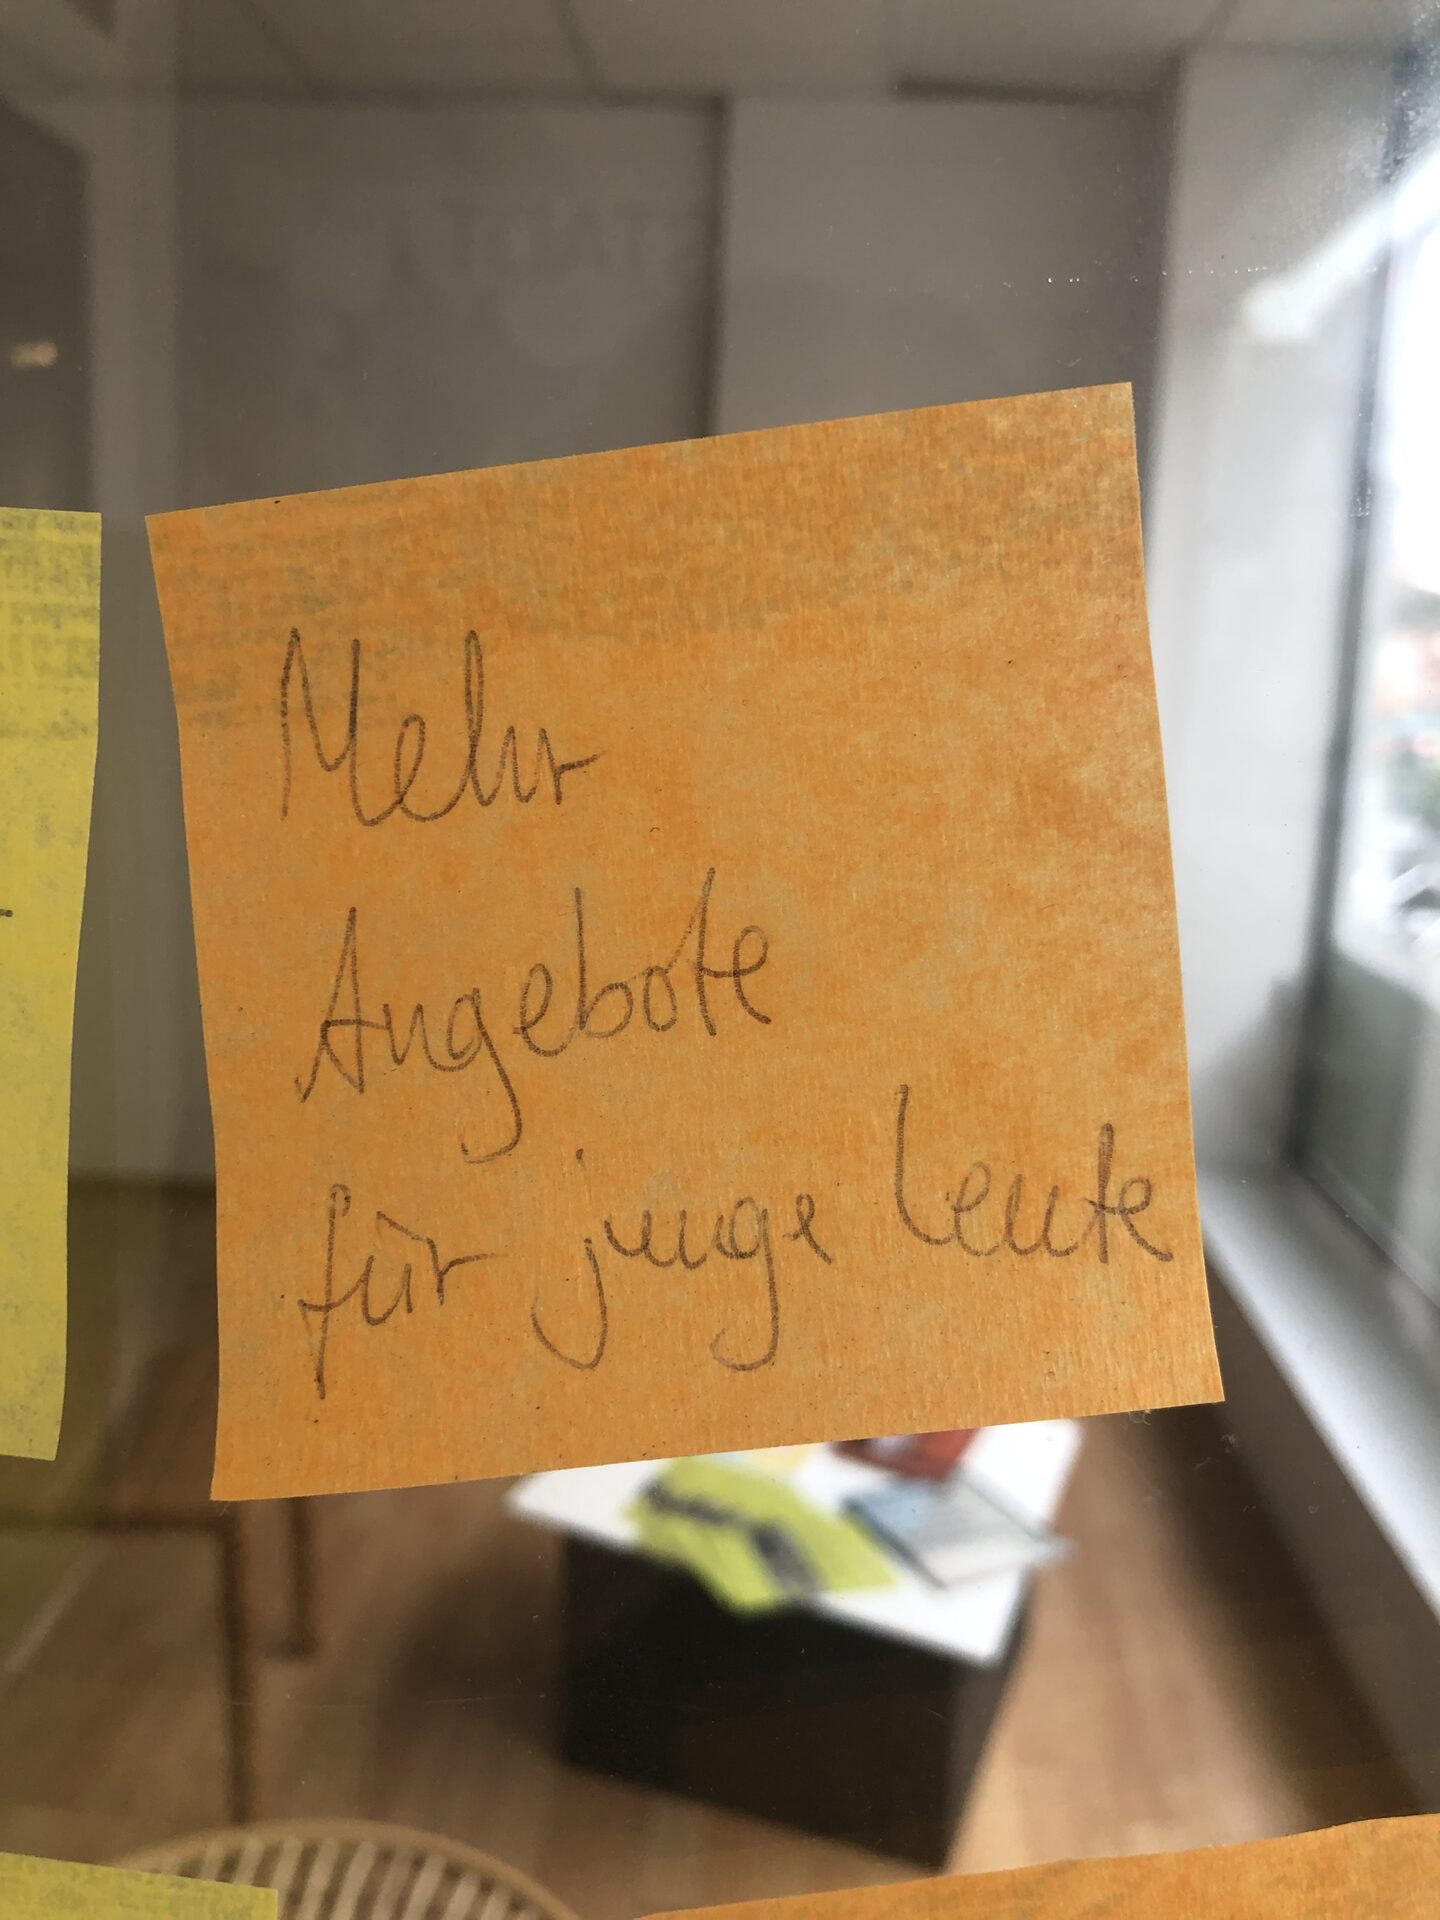 Mehr
Angebote
für junge Leute